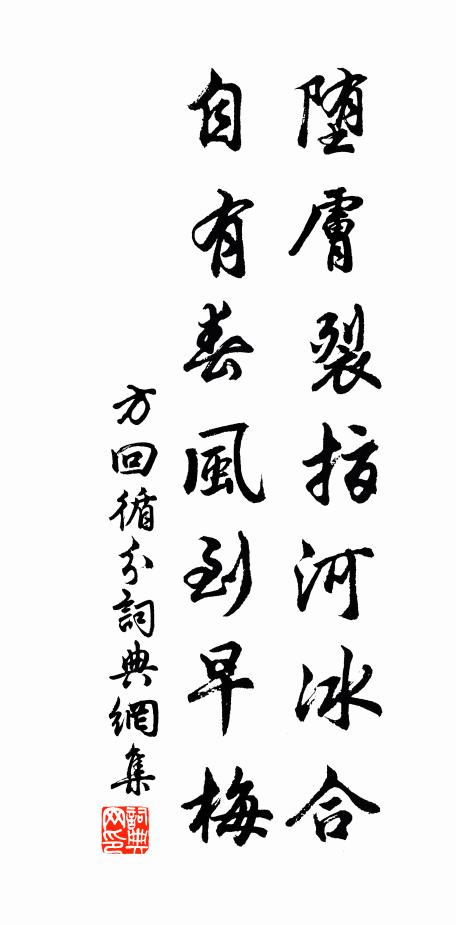 堕膚裂指河冰合
自有春風到早梅
方回循分詞典網集
詞典网印